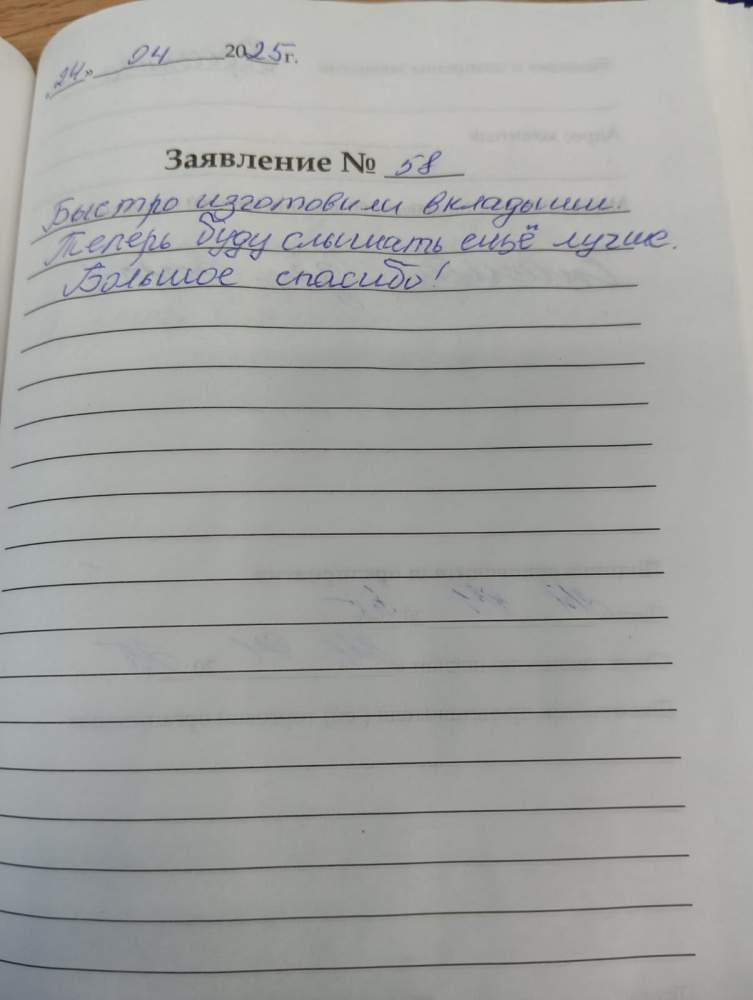 „24” 04 2025 г.
Заявление № 58
Быстро изготовили вкладыши.
Теперь буду слышать ещё лучше.
Большое спасибо!